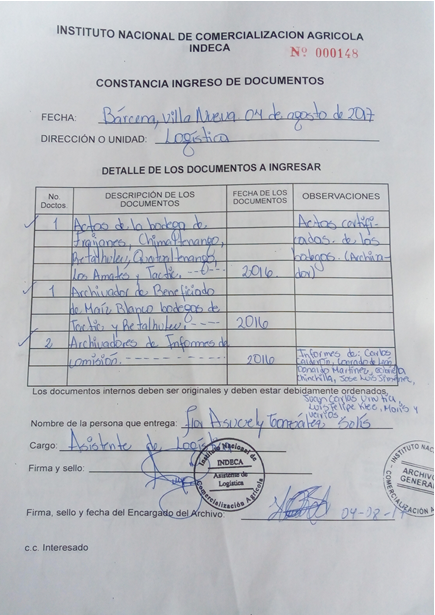 INSTITUTO NACIONAL DE COMERCIALIZACION AGRICOLA
INDECA
Nº 000148
CONSTANCIA INGRESO DE DOCUMENTOS
FECHA: Bárcena, Villa Nueva 04 de agosto de 2017
DIRECCIÓN O UNIDAD: Logística
DETALLE DE LOS DOCUMENTOS A INGRESAR
No. Doctos. DESCRIPCIÓN DE LOS DOCUMENTOS FECHA DE LOS DOCUMENTOS OBSERVACIONES
1 Actas de la bodega de Fraijanes, Chimaltenango, Retalhuleu, Quetzaltenango, Los Amates y Tactic. 2016. Actas certificadas de las bodegas (Archivador)
1 Archivador de Beneficiado de Maíz Blanco bodegas de Tactic y Retalhuleu. 2016
2 Archivadores de Informes de comisión. 2016 Informes de: Carlos Calderón, Conrado de León, Donaldo Martínez, Chinchilla, Jose Luis
Juan Carlos Urrutia, Luis Felipe Mario y varios
Los documentos internos deben ser originales y deben estar debidamente ordenados.
Nombre de la persona que entrega: Flor Asucely González Solís
Cargo: Asistente de Logística
Firma y sello:
Instituto Nacional de Comercialización Agrícola
INDECA
Asistente de Logística
Firma, sello y fecha del Encargado del Archivo: 04-08-17
INSTITUTO NAC
ARCHIVO GENERAL
COMERCIALIZACION A
c.c. Interesado